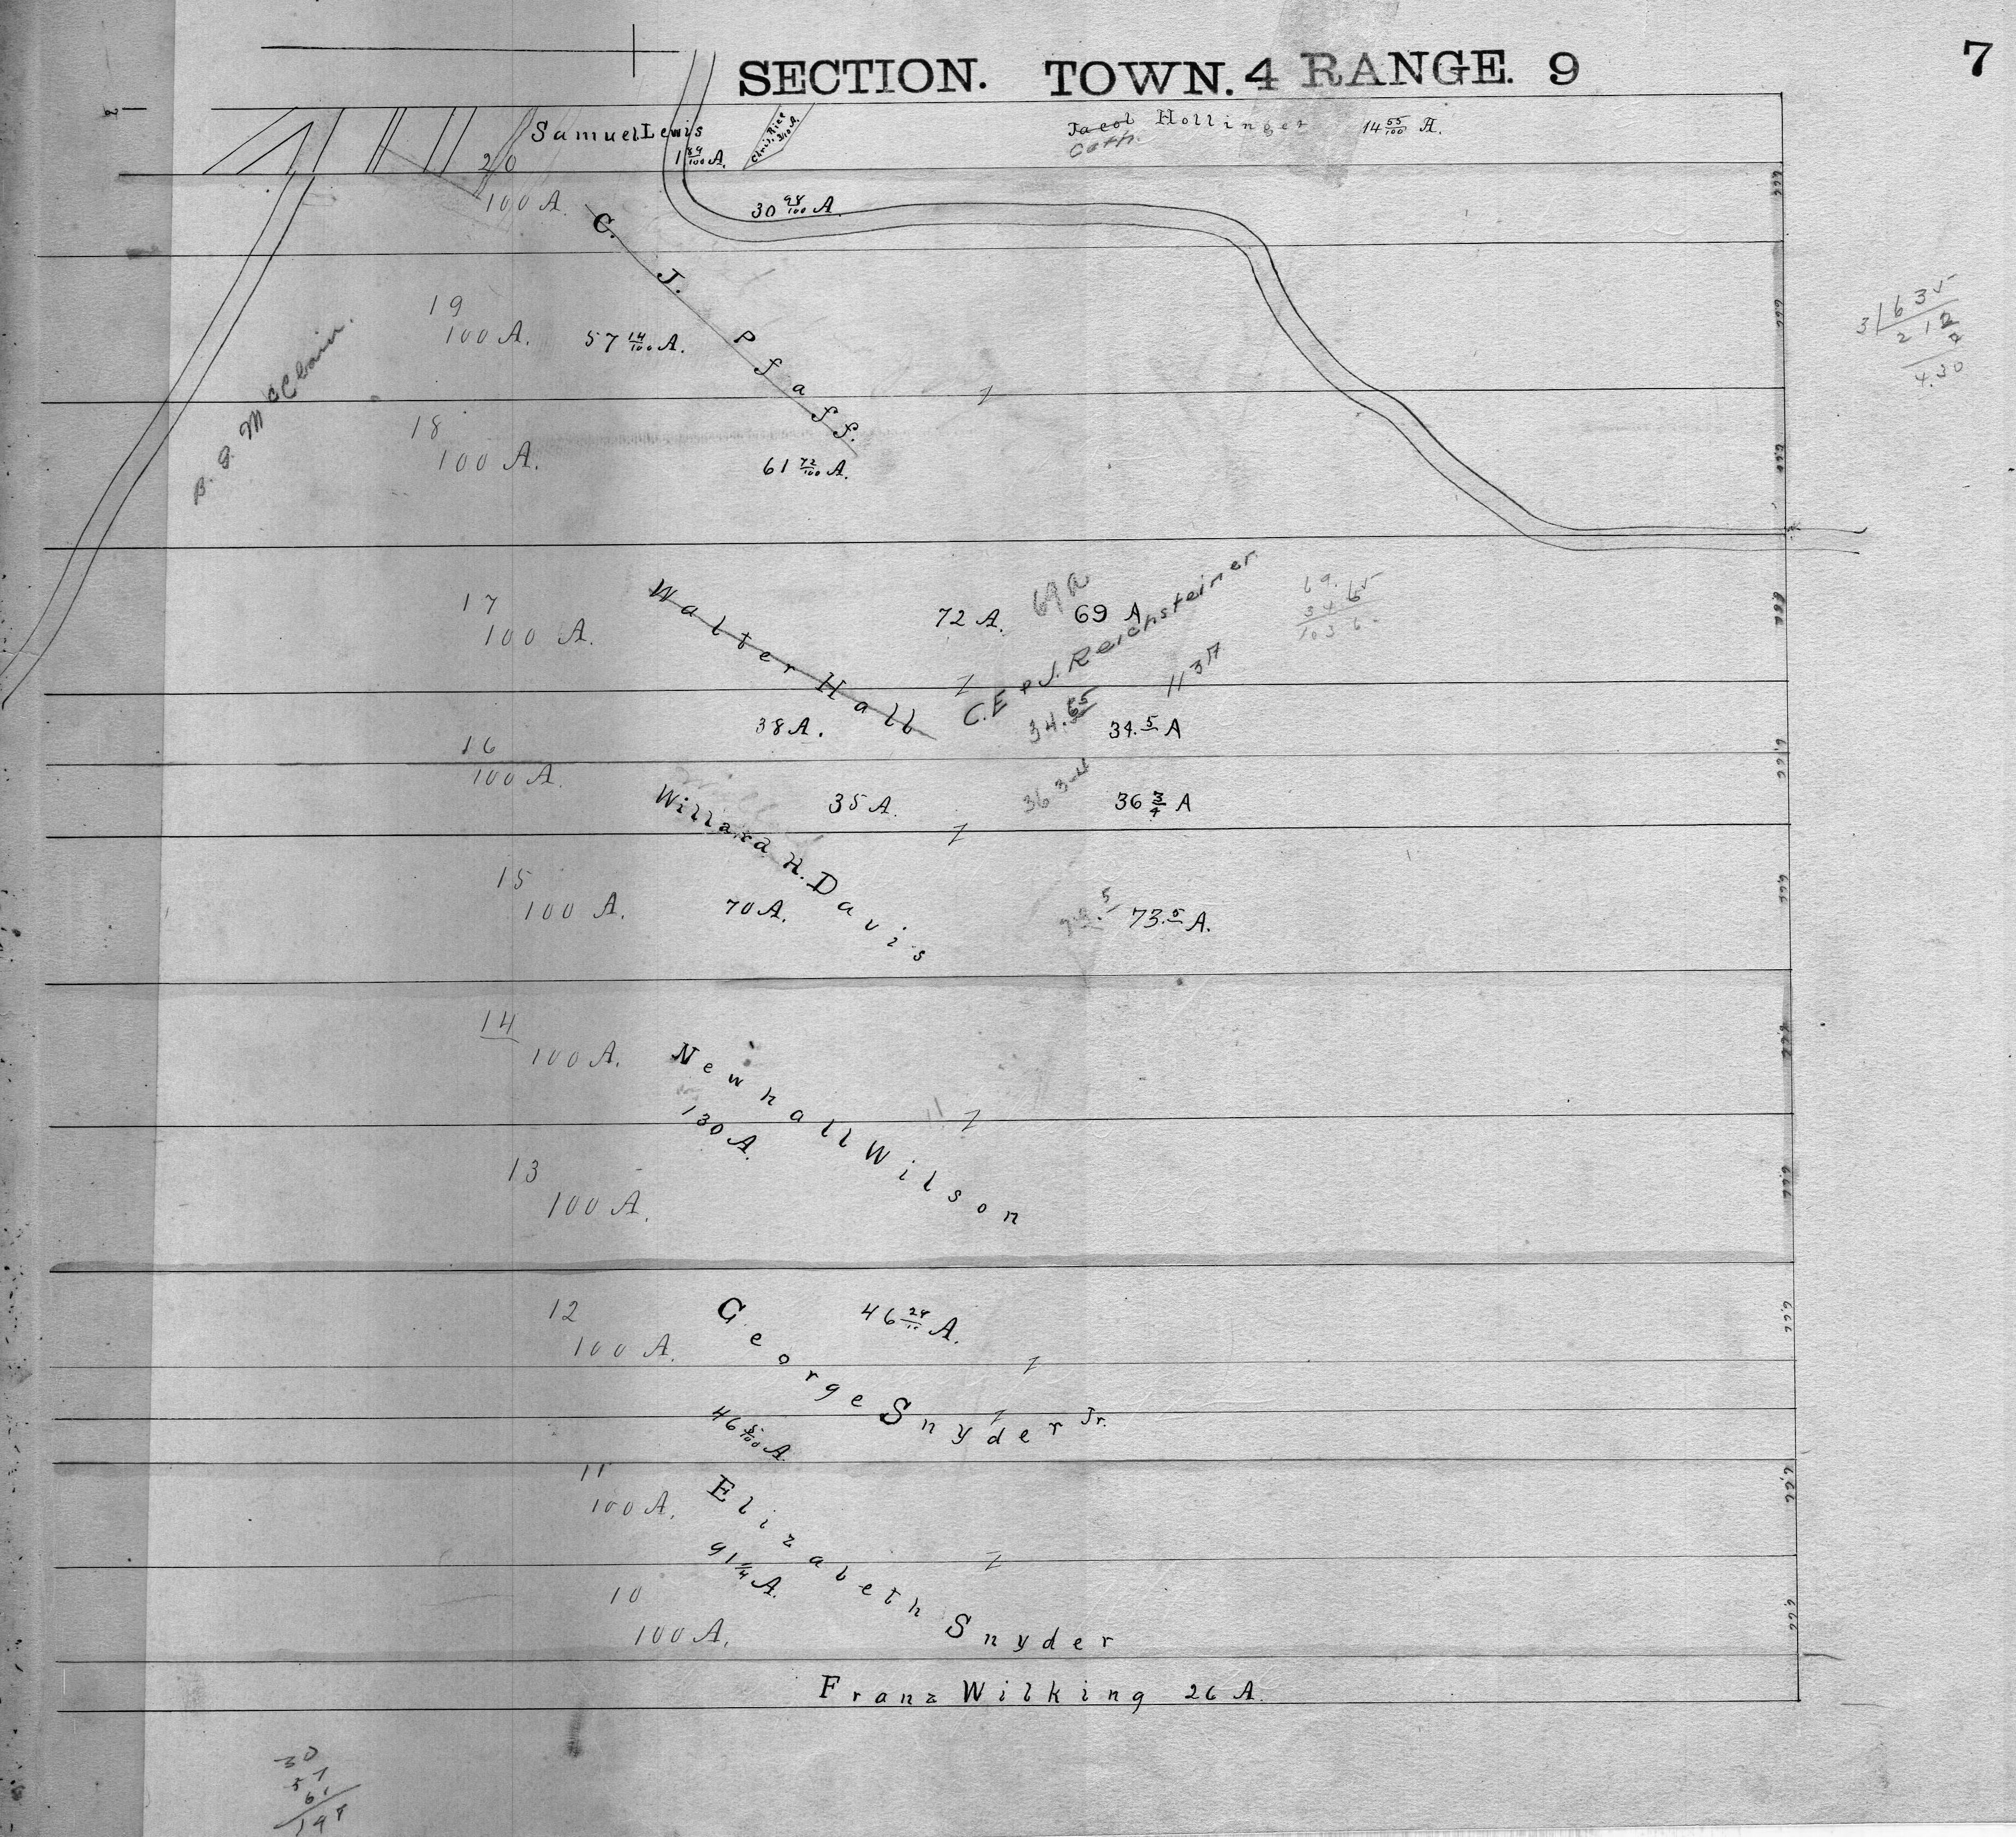 SECTION. TOWN. 4 RANGE. 9
7
2
Samuel Lewis
1 84/100 A.
Chris. Rice
3/10 A.
Jacob Hollinger 14 55/100 A.
Cath.
20
100 A.
30 98/100 A.
C. J. Pfaff.
19
100 A.
57 14/100 A.
B. G. McClain.
18
100 A.
61 72/100 A.
3/635
212
2
4.30
17
100 A.
Walter Hall
72 A.
69 A
69 A
C.E & J. Reichsteiner.
113 A
69.
34 65
103 6
16
100 A.
38 A.
34.65
34.5 A
Willard H. Davis
35 A.
36 3-4
36 3/4 A
15
100 A.
70 A.
73.5
73.5 A.
14
100 A.
Newhall Wilson
130 A.
13
100 A.
12
100 A.
George Snyder Jr.
46 24/100 A.
46 5/100 A.
11
100 A.
Elizabeth Snyder
91 1/4 A.
10
100 A.
Franz Wilking 26 A.
666
666
666
666
666
666
666
666
666
666
666
30
57
61
148